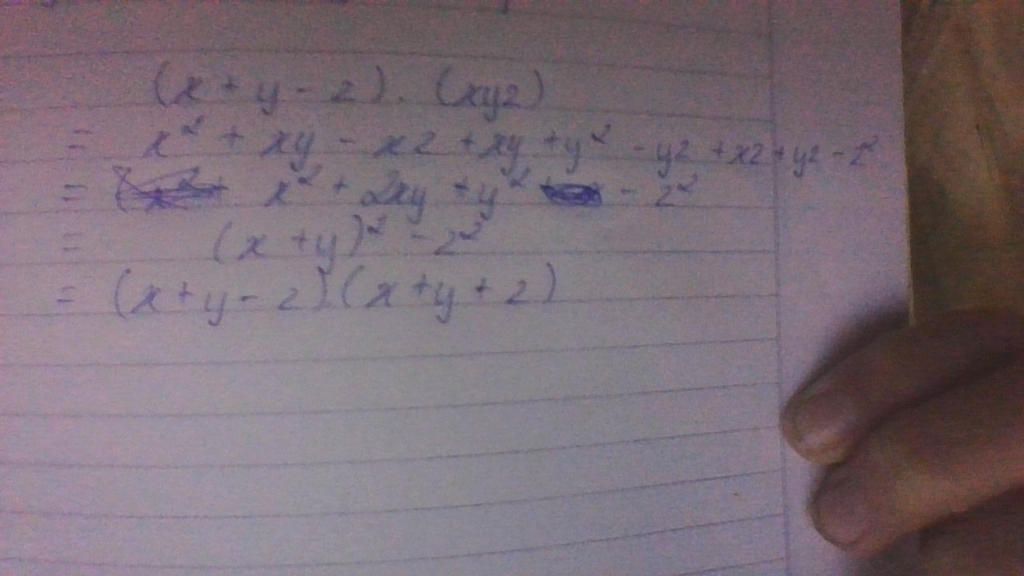 (x + y - z). (xyz)
= x² + xy - xz + xy + y² - yz + xz + yz - z²
= x² + 2xy + y² - z²
= (x + y)² - z²
= (x + y - z)(x + y + z)